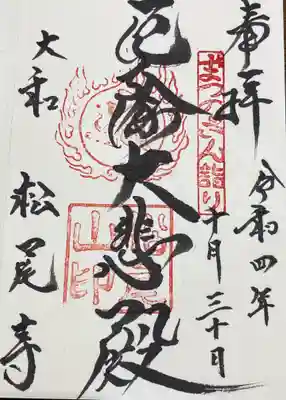 奉拝
令和四年
十月三十日
まつのさん詣り
厄除大悲殿
大和
松尾寺